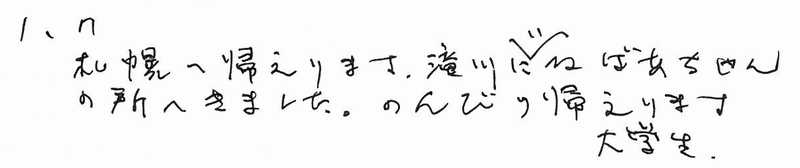 1、n
札幌へ帰えります。滝川にねばあちゃん
の所へきました。のんびり帰えります
大学生.